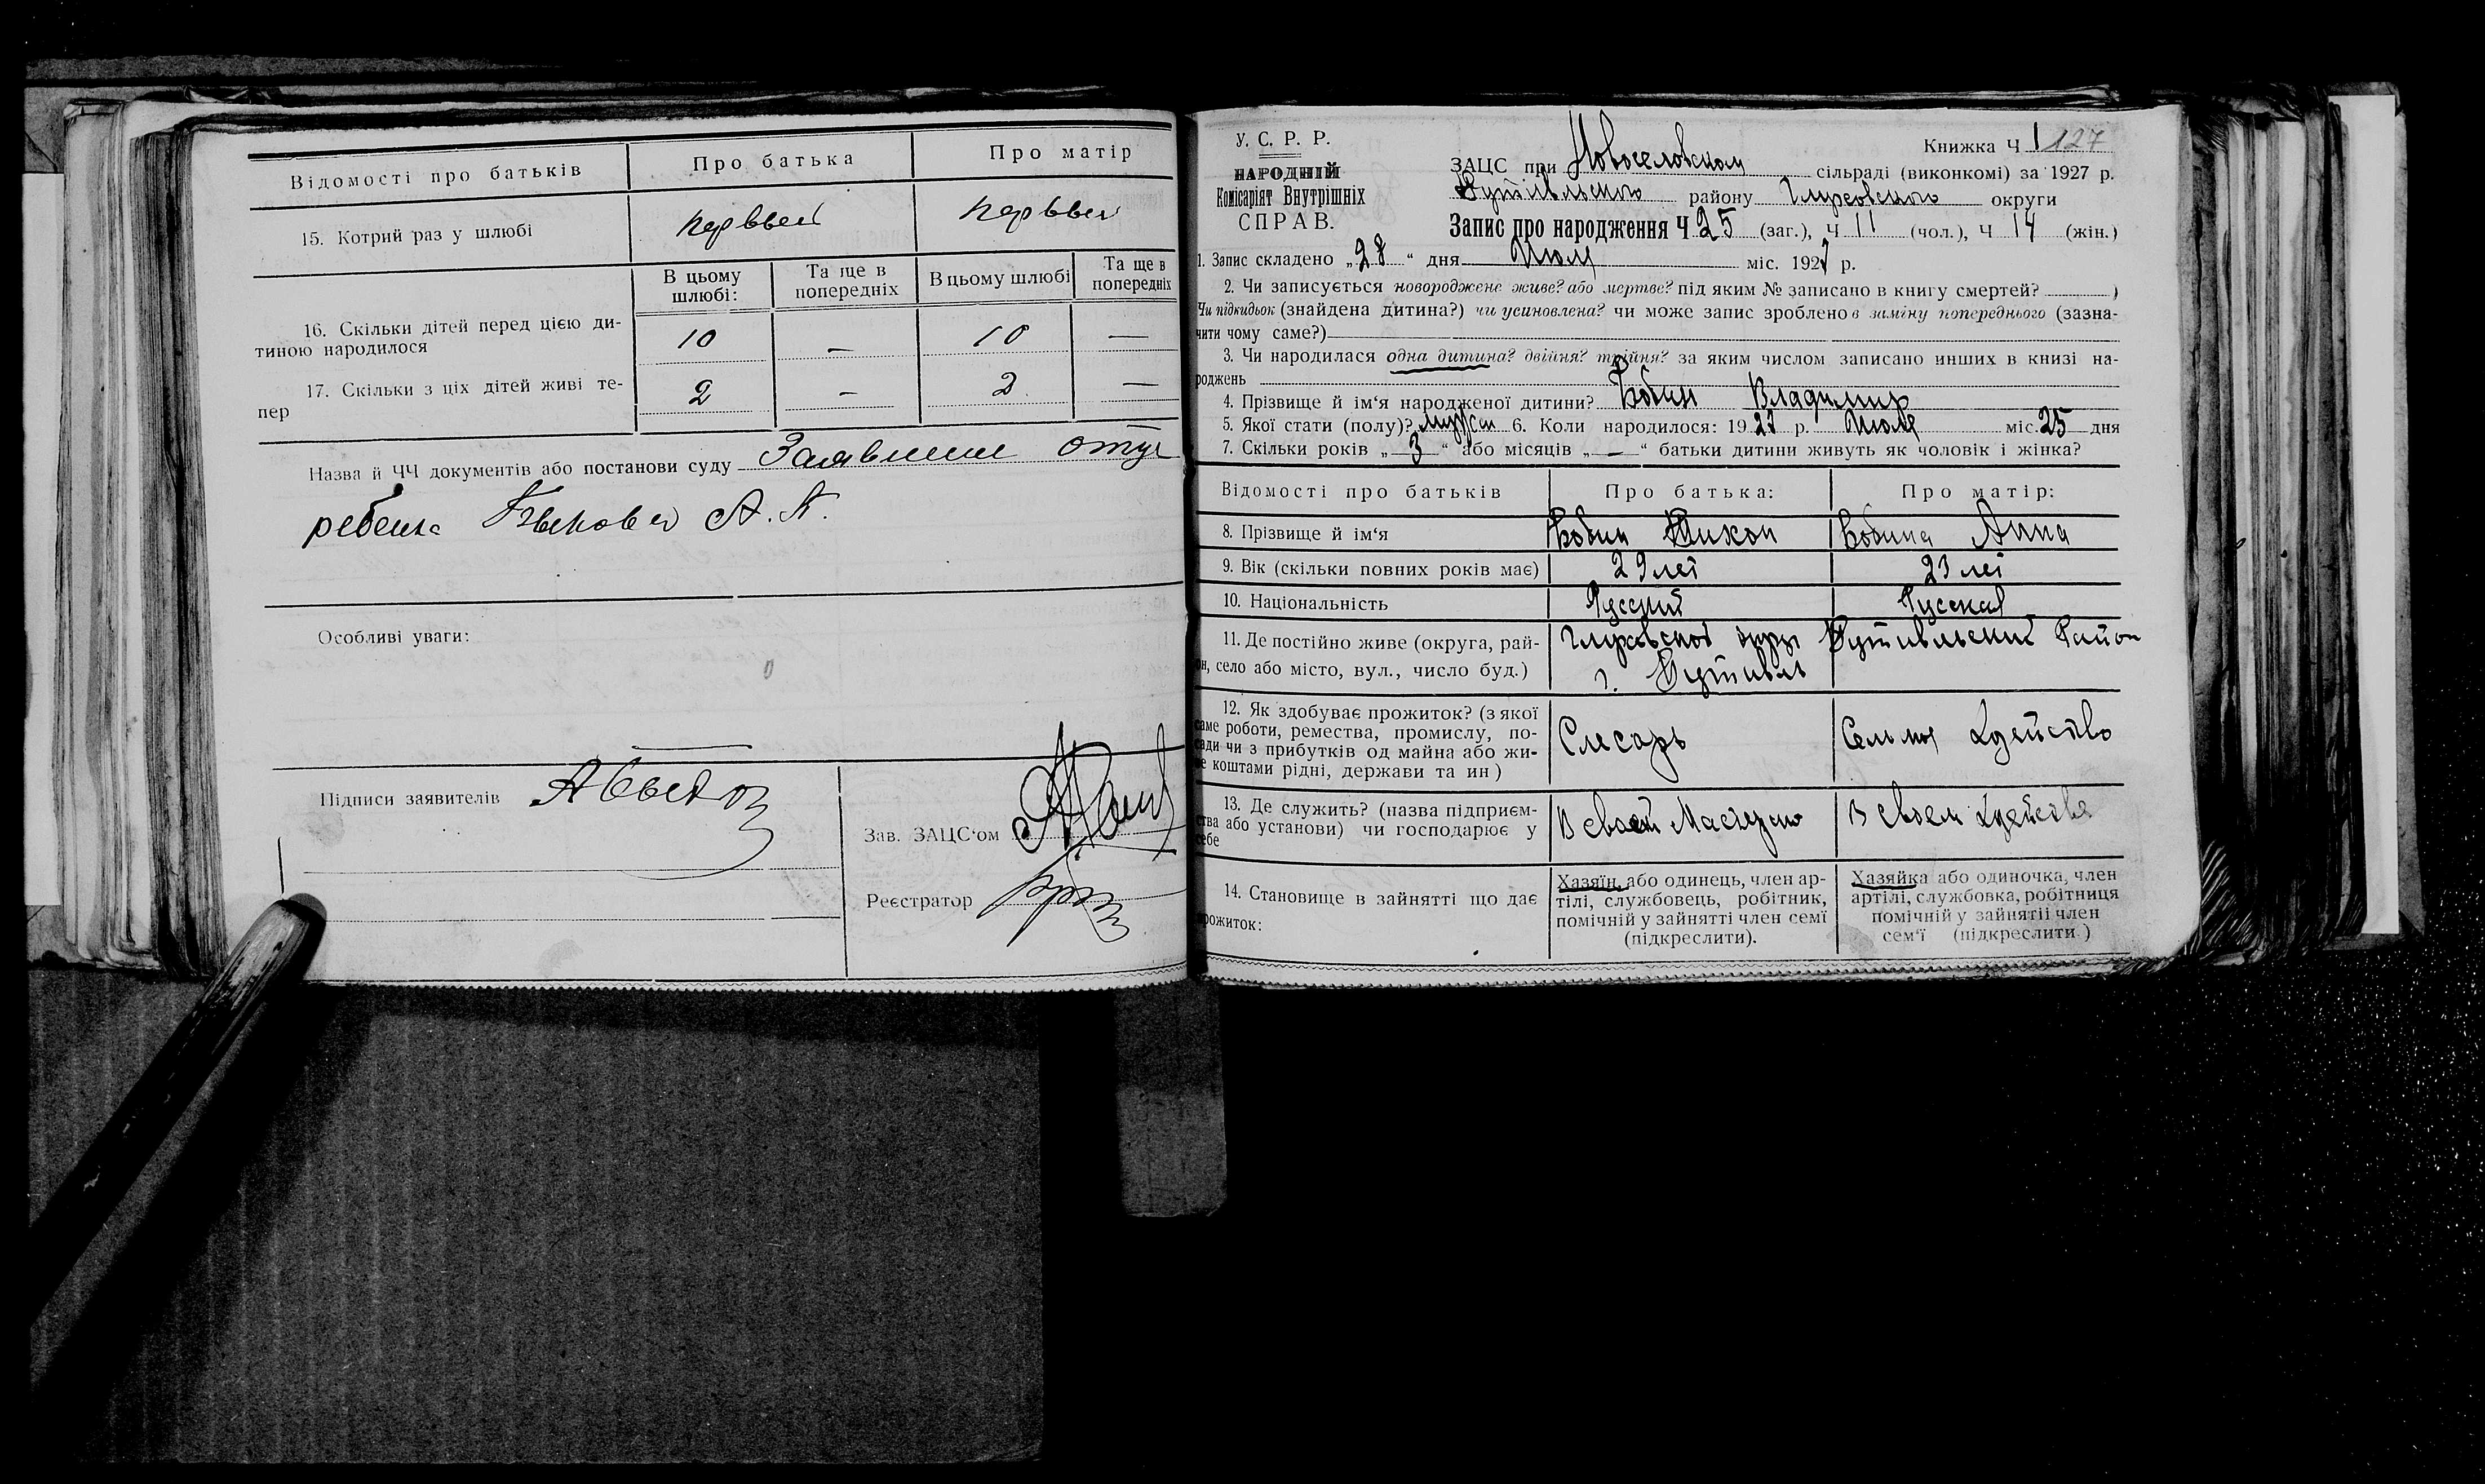 Відомості про батьків
Про батька
Про матір
15. Котрий раз у шлюбі
первый
первый
В цьому шлюбі:
Та ще в попередніх
В цьому шлюбі
Та ще в попередніх
16. Скільки дітей перед цією ди-
тиною народилося
10 — 10 —
17. Скільки з ціх дітей живі те-
пер
2 — 2 —
Назва й ЧЧ документів або постанови суду Заявление отца
ребенка А. А.
Особливі уваги:
Підписи заявителів
Зав. ЗАЦС'ом
Реєстратор
У. С. Р. Р.
НАРОДНІЙ
Комісаріят Внутрішніх
СПРАВ.
Книжка Ч 1 127
ЗАЦС при Новоселовском сільраді (виконкомі) за 1927 р.
Путивльского району Глуховского округи
Запис про народження Ч 25 (заг.), Ч 11 (чол.), Ч 14 (жін.)
1. Запис складено „28“ дня Июля міс. 1927 р.
2. Чи записується новороджене живе? або мертве? під яким № записано в книгу смертей? )
Чи підкидьок (знайдена дитина?) чи усиновлена? чи може запис зроблено в заміну попереднього (зазна-
чити чому саме?)
3. Чи народилася одна дитина? двійня? трійня? за яким числом записано инших в книзі на-
роджень
4. Прізвище й ім'я народженої дитини? Бобин Владимир
5. Якої стати (полу)? мужск 6. Коли народилося: 1927 р. Июля міс. 25 дня
7. Скільки років „3“ або місяців „—“ батьки дитини живуть як чоловік і жінка?
Відомості про батьків
Про батька:
Про матір:
8. Прізвище й ім'я
Бобин Тихон
Бобина Анна
9. Вік (скільки повних років має)
29 лет
23 лет
10. Національність
Русский
Русская
11. Де постійно живе (округа, рай-
он, село або місто, вул., число буд.)
Глуховской округ
г. Путивль
Путивльский Район
12. Як здобуває прожиток? (з якої
саме роботи, ремества, промислу, по-
сади чи з прибутків од майна або жи-
ве коштами рідні, держави та ин)
Слесарь
13. Де служить? (назва підприєм-
ства або установи) чи господарює у
себе
В своей
В своем
14. Становище в зайнятті що дає
прожиток:
Хазяїн, або одинець, член ар-
тілі, службовець, робітник,
помічній у зайнятті член семї
(підкреслити).
Хазяйка або одиночка, член
артілі, службовка, робітниця
помічній у зайнятіі член
сем'ї (підкреслити.)